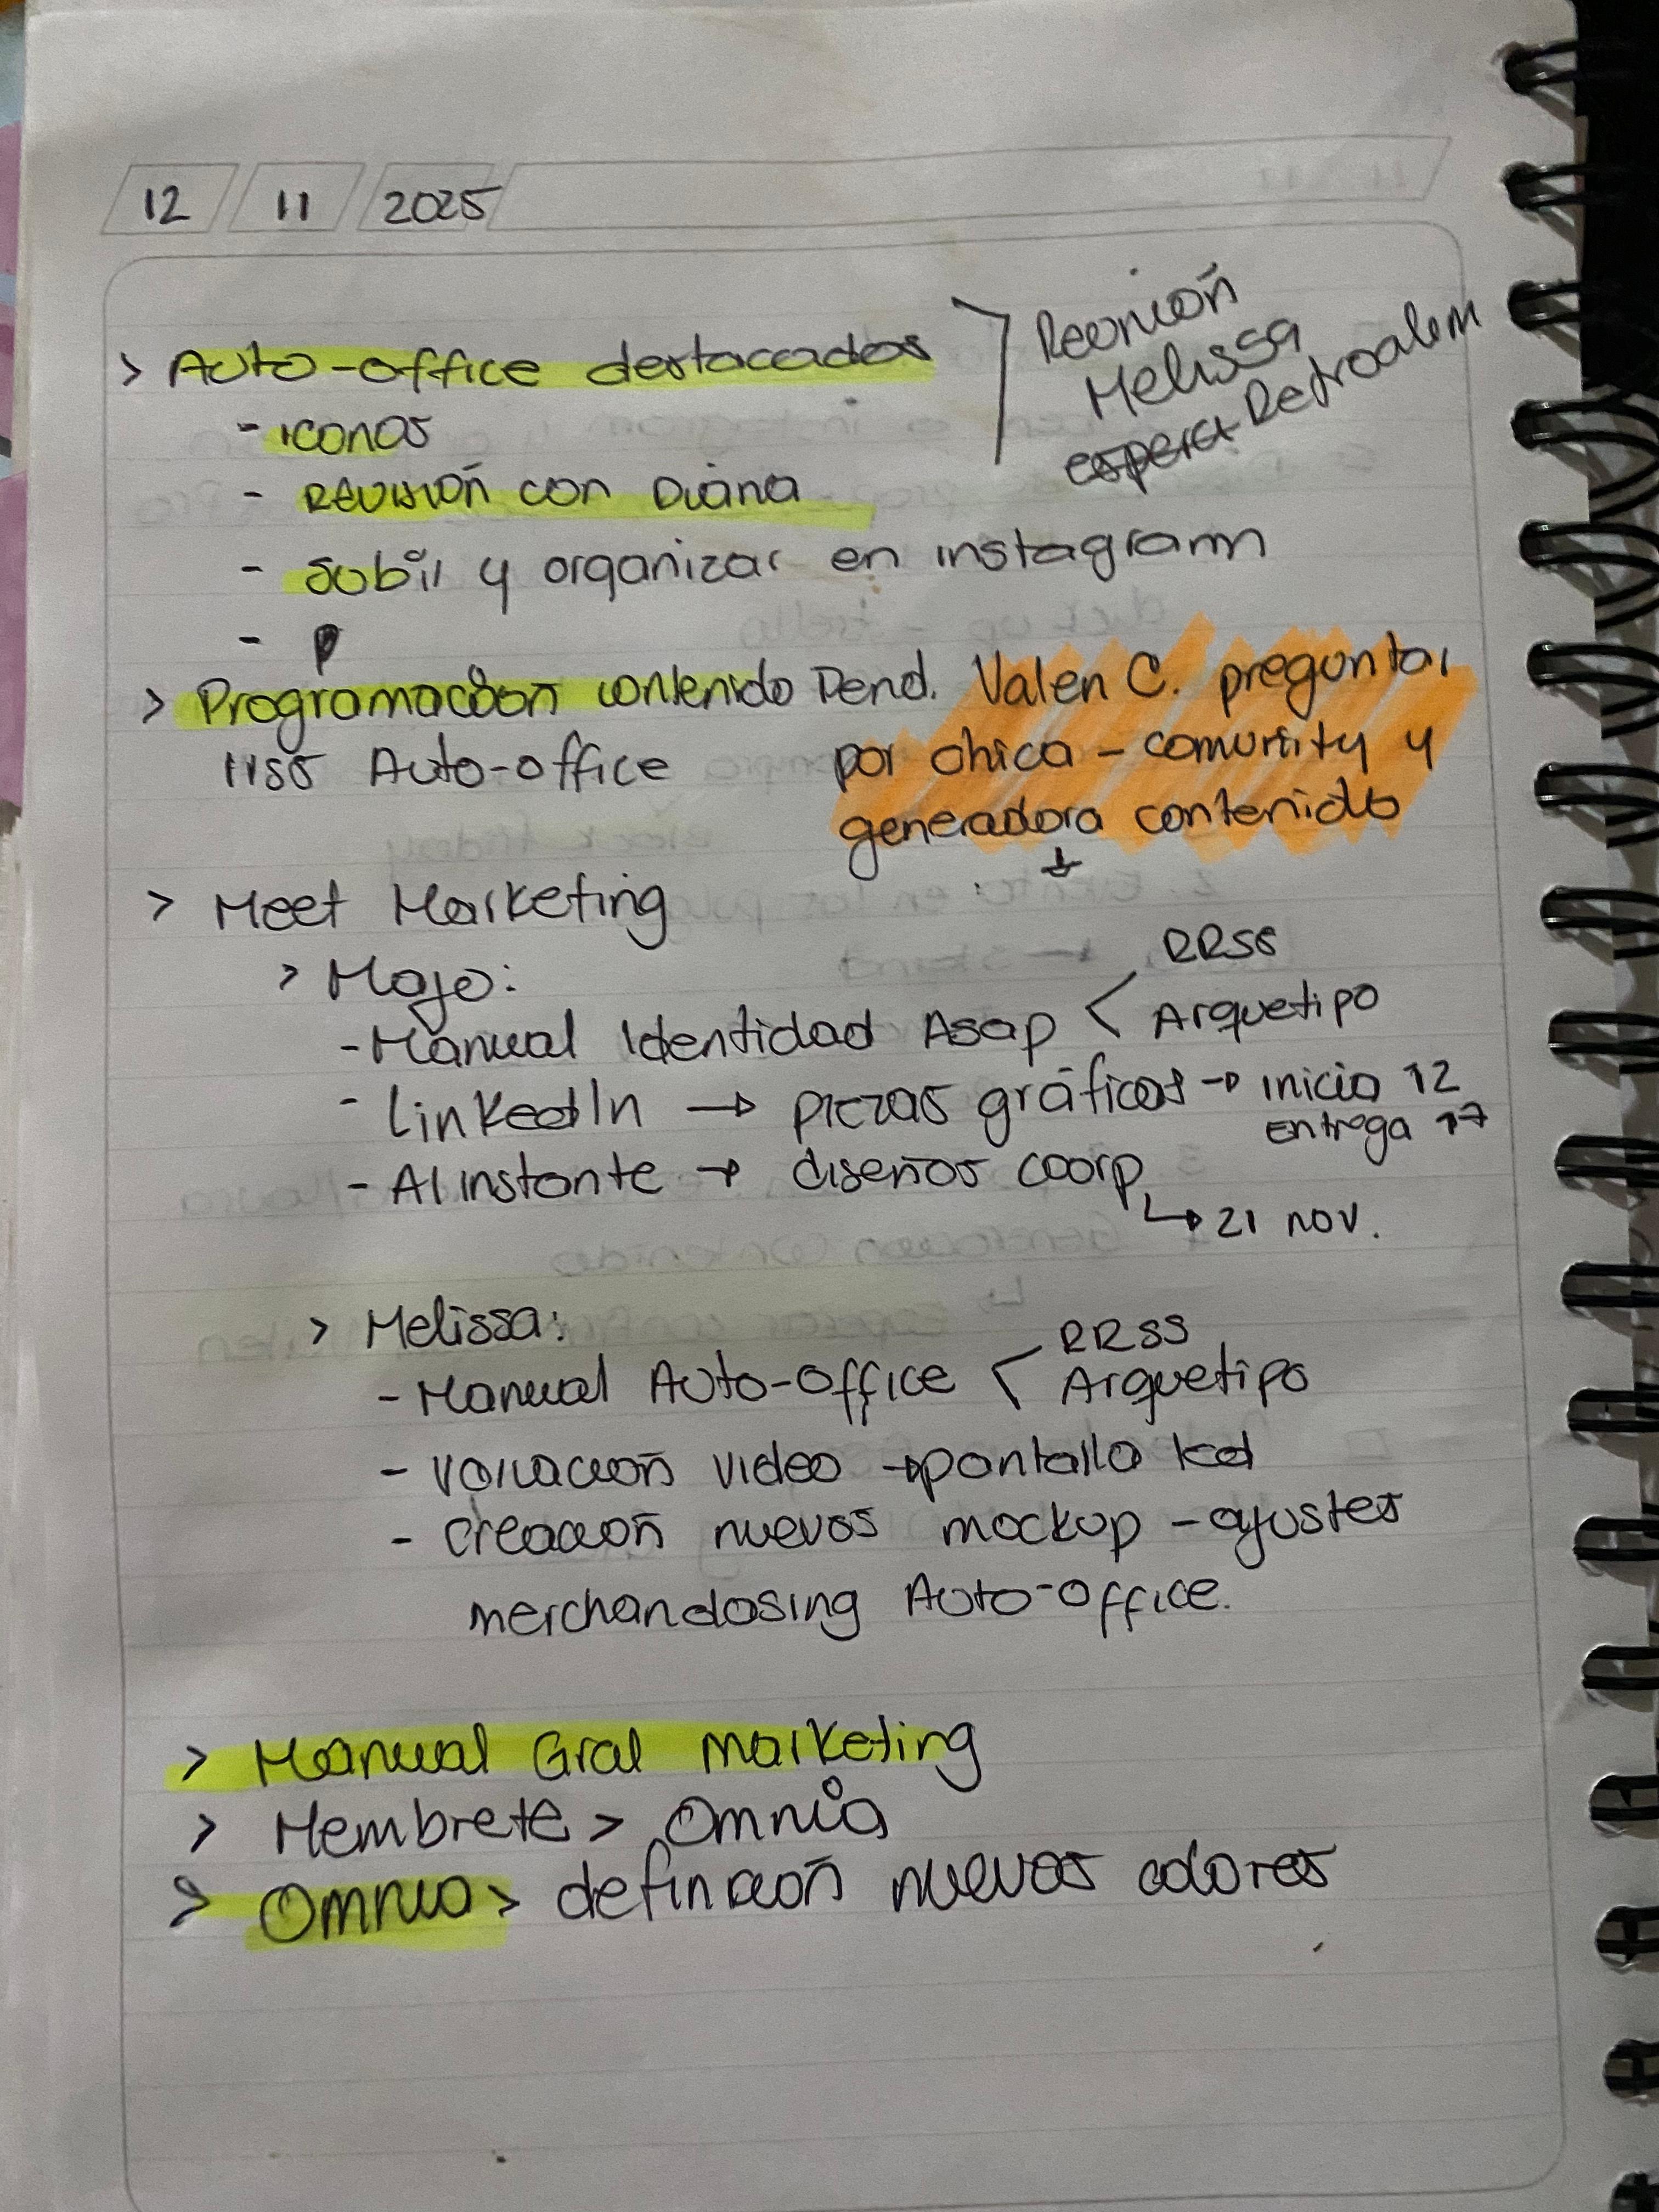 12 11 2025
> Auto-office destaccados
Reunión
Melissa
espera Retroalem
- iconos
- Revisión con Diana
- Subir y organizar en instagram
- p
> Programación contenido
Auto-office
Pend. Valen C. preguntar
por chica - comunity y
generadora contenido
> Meet Marketing
> Majo:
- Manual Identidad Asap < RRSS
Arquetipo
- LinkedIn → piezas gráficas → inicio 12
entrega 17
- Al instante → diseños coorp
↳ 21 nov.
> Melissa:
- Manual Auto-office < RRSS
Arquetipo
- Variación video → pantalla
- Creación nuevos mockup - ajustes
merchandosing Auto-office.
> Manual Gral Marketing
> Membrete > Omnia
> Omnia > definición nuevos colores